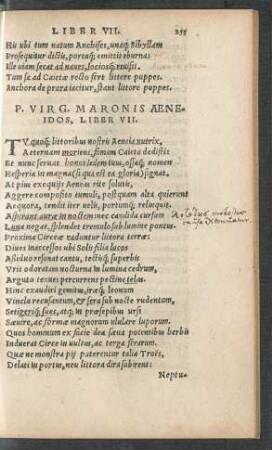 LIBER VII.
255
His ubi tum natum Anchises, unaq; Sibyllam
Prosequitur dictis, portaq; emittit eburna:
Ille viam secat ad naves, sociosq; revisit.
Tum se ad Caietæ recto fert littore puppes.
Anchora de prora iacitur, stant litore puppes.
P. VIRG. MARONIS AENE-
IDOS, LIBER VII.
TV quoq; littoribus nostris Aeneia nutrix,
Aeternam moriens, famam Caieta dedisti:
Et nunc servat honos sedem tuus, ossaq; nomen
Hesperia in magna (si qua est ea gloria) signat.
At pius exequijs Aeneas rite solutis,
Aggere composito tumuli, postquam alta quierunt
Aequora, tendit iter velis, portumq; relinquit.
Aspirant auræ in noctem: nec candida cursum
Luna negat, splendet tremulo sub lumine pontus.
Proxima Circeæ raduntur litora terræ:
Dives inaccessos ubi Solis filia lucos
Assiduo resonat cantu, tectisq; superbis
Vrit odoratam nocturna in lumina cedrum,
Arguto tenues percurrens pectine telas.
Hinc exaudiri gemitus, iræq; leonum
Vincla recusantum, et sera sub nocte rudentum,
Setigeriq; sues, atq; in præsepibus ursi
Sævire, ac formæ magnorum ululare luporum.
Quos hominum ex facie dea sæva potentibus herbis
Induerat Circe in vultus, ac terga ferarum.
Quæ ne monstra pij paterentur talia Troës,
Delati in portus, neu littora dira subirent:
Neptu-